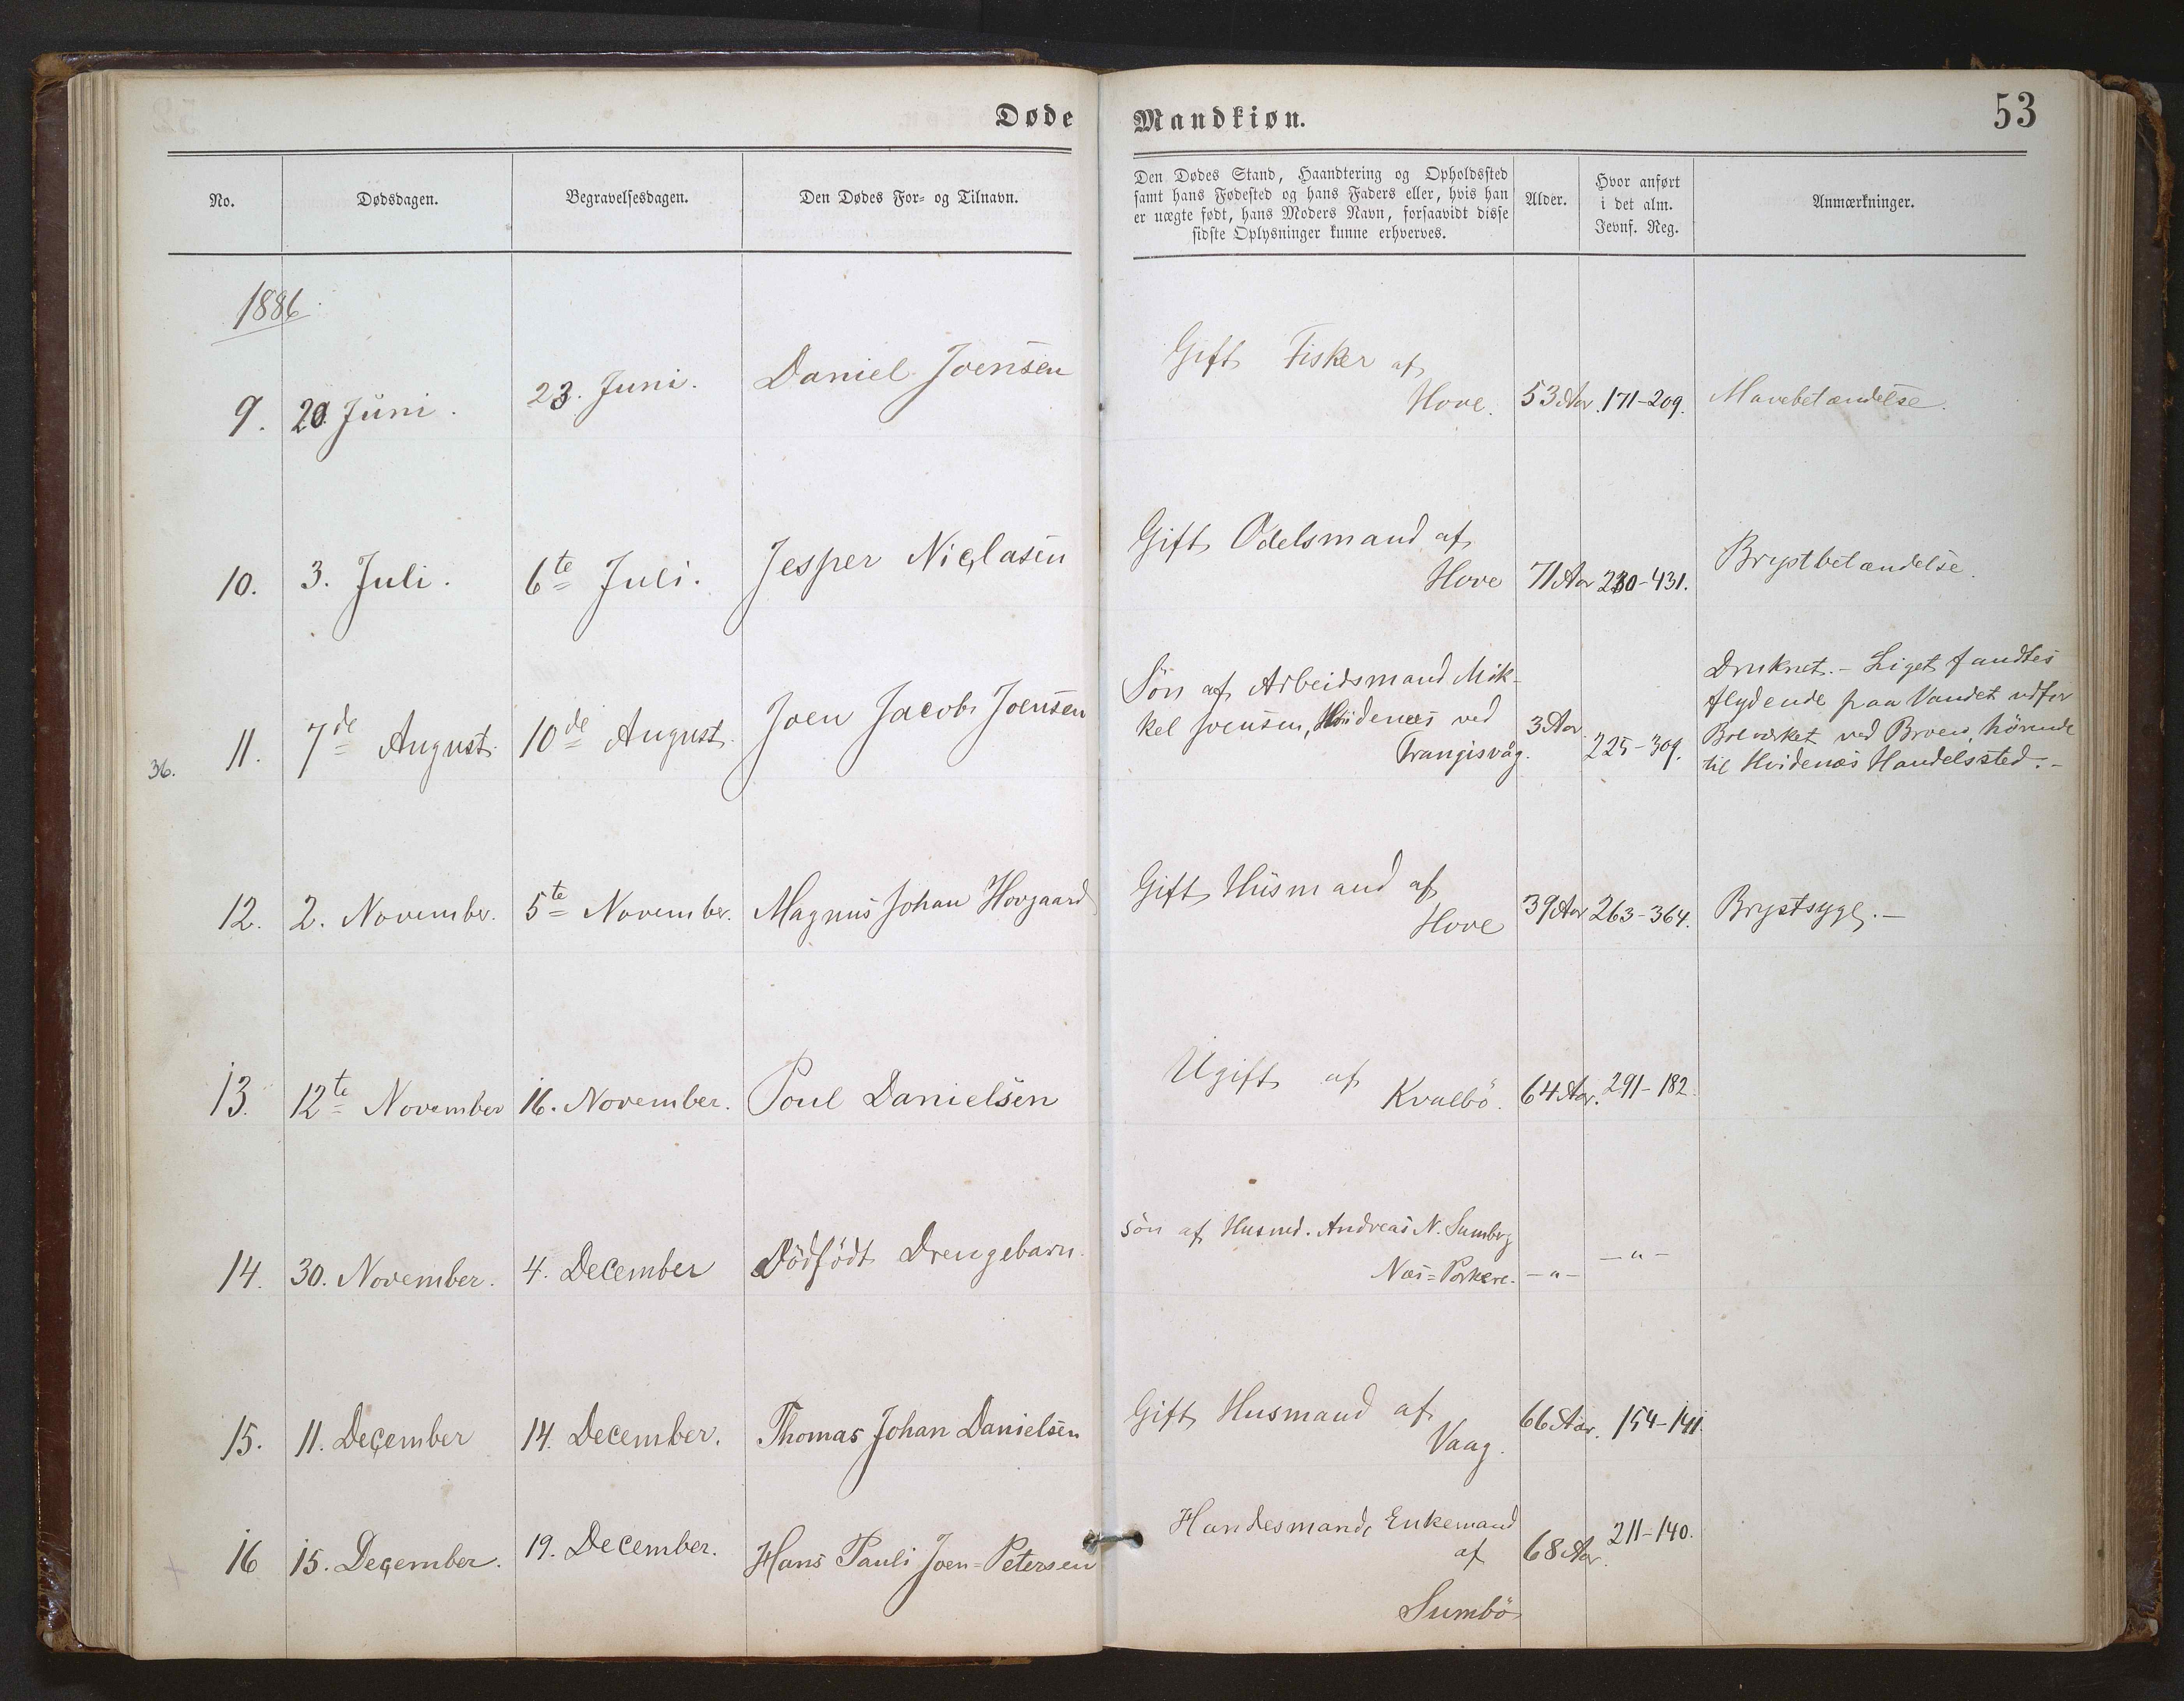 Døde Mandkiøn.
53
No.
Dødsdagen.
Begravelsesdagen.
Den Dødes For- og Tilnavn.
Den Dødes Stand, Haandtering og Opholdssted
samt hans Fødested og hans Faders eller, hvis han
er uægte født, hans Moders Navn, forsaavidt disse
sidste Oplysninger kunne erhverves.
Alder.
Hvor anført
i det alm.
Jevnf. Reg.
Anmærkninger.
1886.
9. 20 Juni. 23. Juni. Daniel Joensen
Gift Fisker af
Hove. 53 Aar. 171-209. Mavebetændelse.
10. 3. Juli. 6te Juli. Jesper Niclasen
Gift Odelsmand af
Hove 71 Aar 230-431. Brystbetændelse.
36. 11. 7de August. 10de August. Joen Jacob Joensen
Søn af Arbeidsmand Mik-
kel Joensen, Hvidenæs ved
Trangisvåg. 3 Aar. 225-309.
Druknet. - Liget fandtes
flydende paa Vandet udfor
Bolværket ved Broen, hørende
til Hvidenæs Handelssted. -
12. 2. November. 5te November. Magnus Johan Hovgaard
Gift Husmand af
Hove 39 Aar 263-364. Brystsyge. -
13. 12te November 16. November. Poul Danielsen
Ugift af
Kvalbö. 64 Aar. 291-182.
14. 30. November. 4. December Dödfödt Drengebarn.
Søn af Husmd. Andreas N. Sumbrg
Næs=Porkere. -"- -"-
15. 11. December 14. December. Thomas Johan Danielsen
Gift Husmand af
Vaag. 66 Aar. 154-141.
16 15. December. 19. December. Hans Pauli Joen=Petersen
Handesmand, Enkemand
af
Sumbö 68 Aar. 211-140.